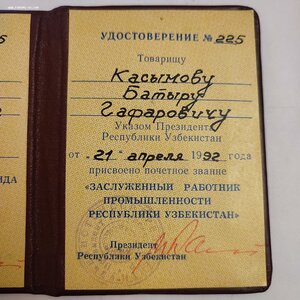 УДОСТОВЕРЕНИЕ № 225
Товарищу
Касымову
Батыру
Гафаровичу
Указом Президента
Республики Узбекистан
от «21» апреля 1992 года
присвоено почетное звание
«ЗАСЛУЖЕННЫЙ РАБОТНИК
ПРОМЫШЛЕННОСТИ
РЕСПУБЛИКИ УЗБЕКИСТАН»
Президент
Республики Узбекистан